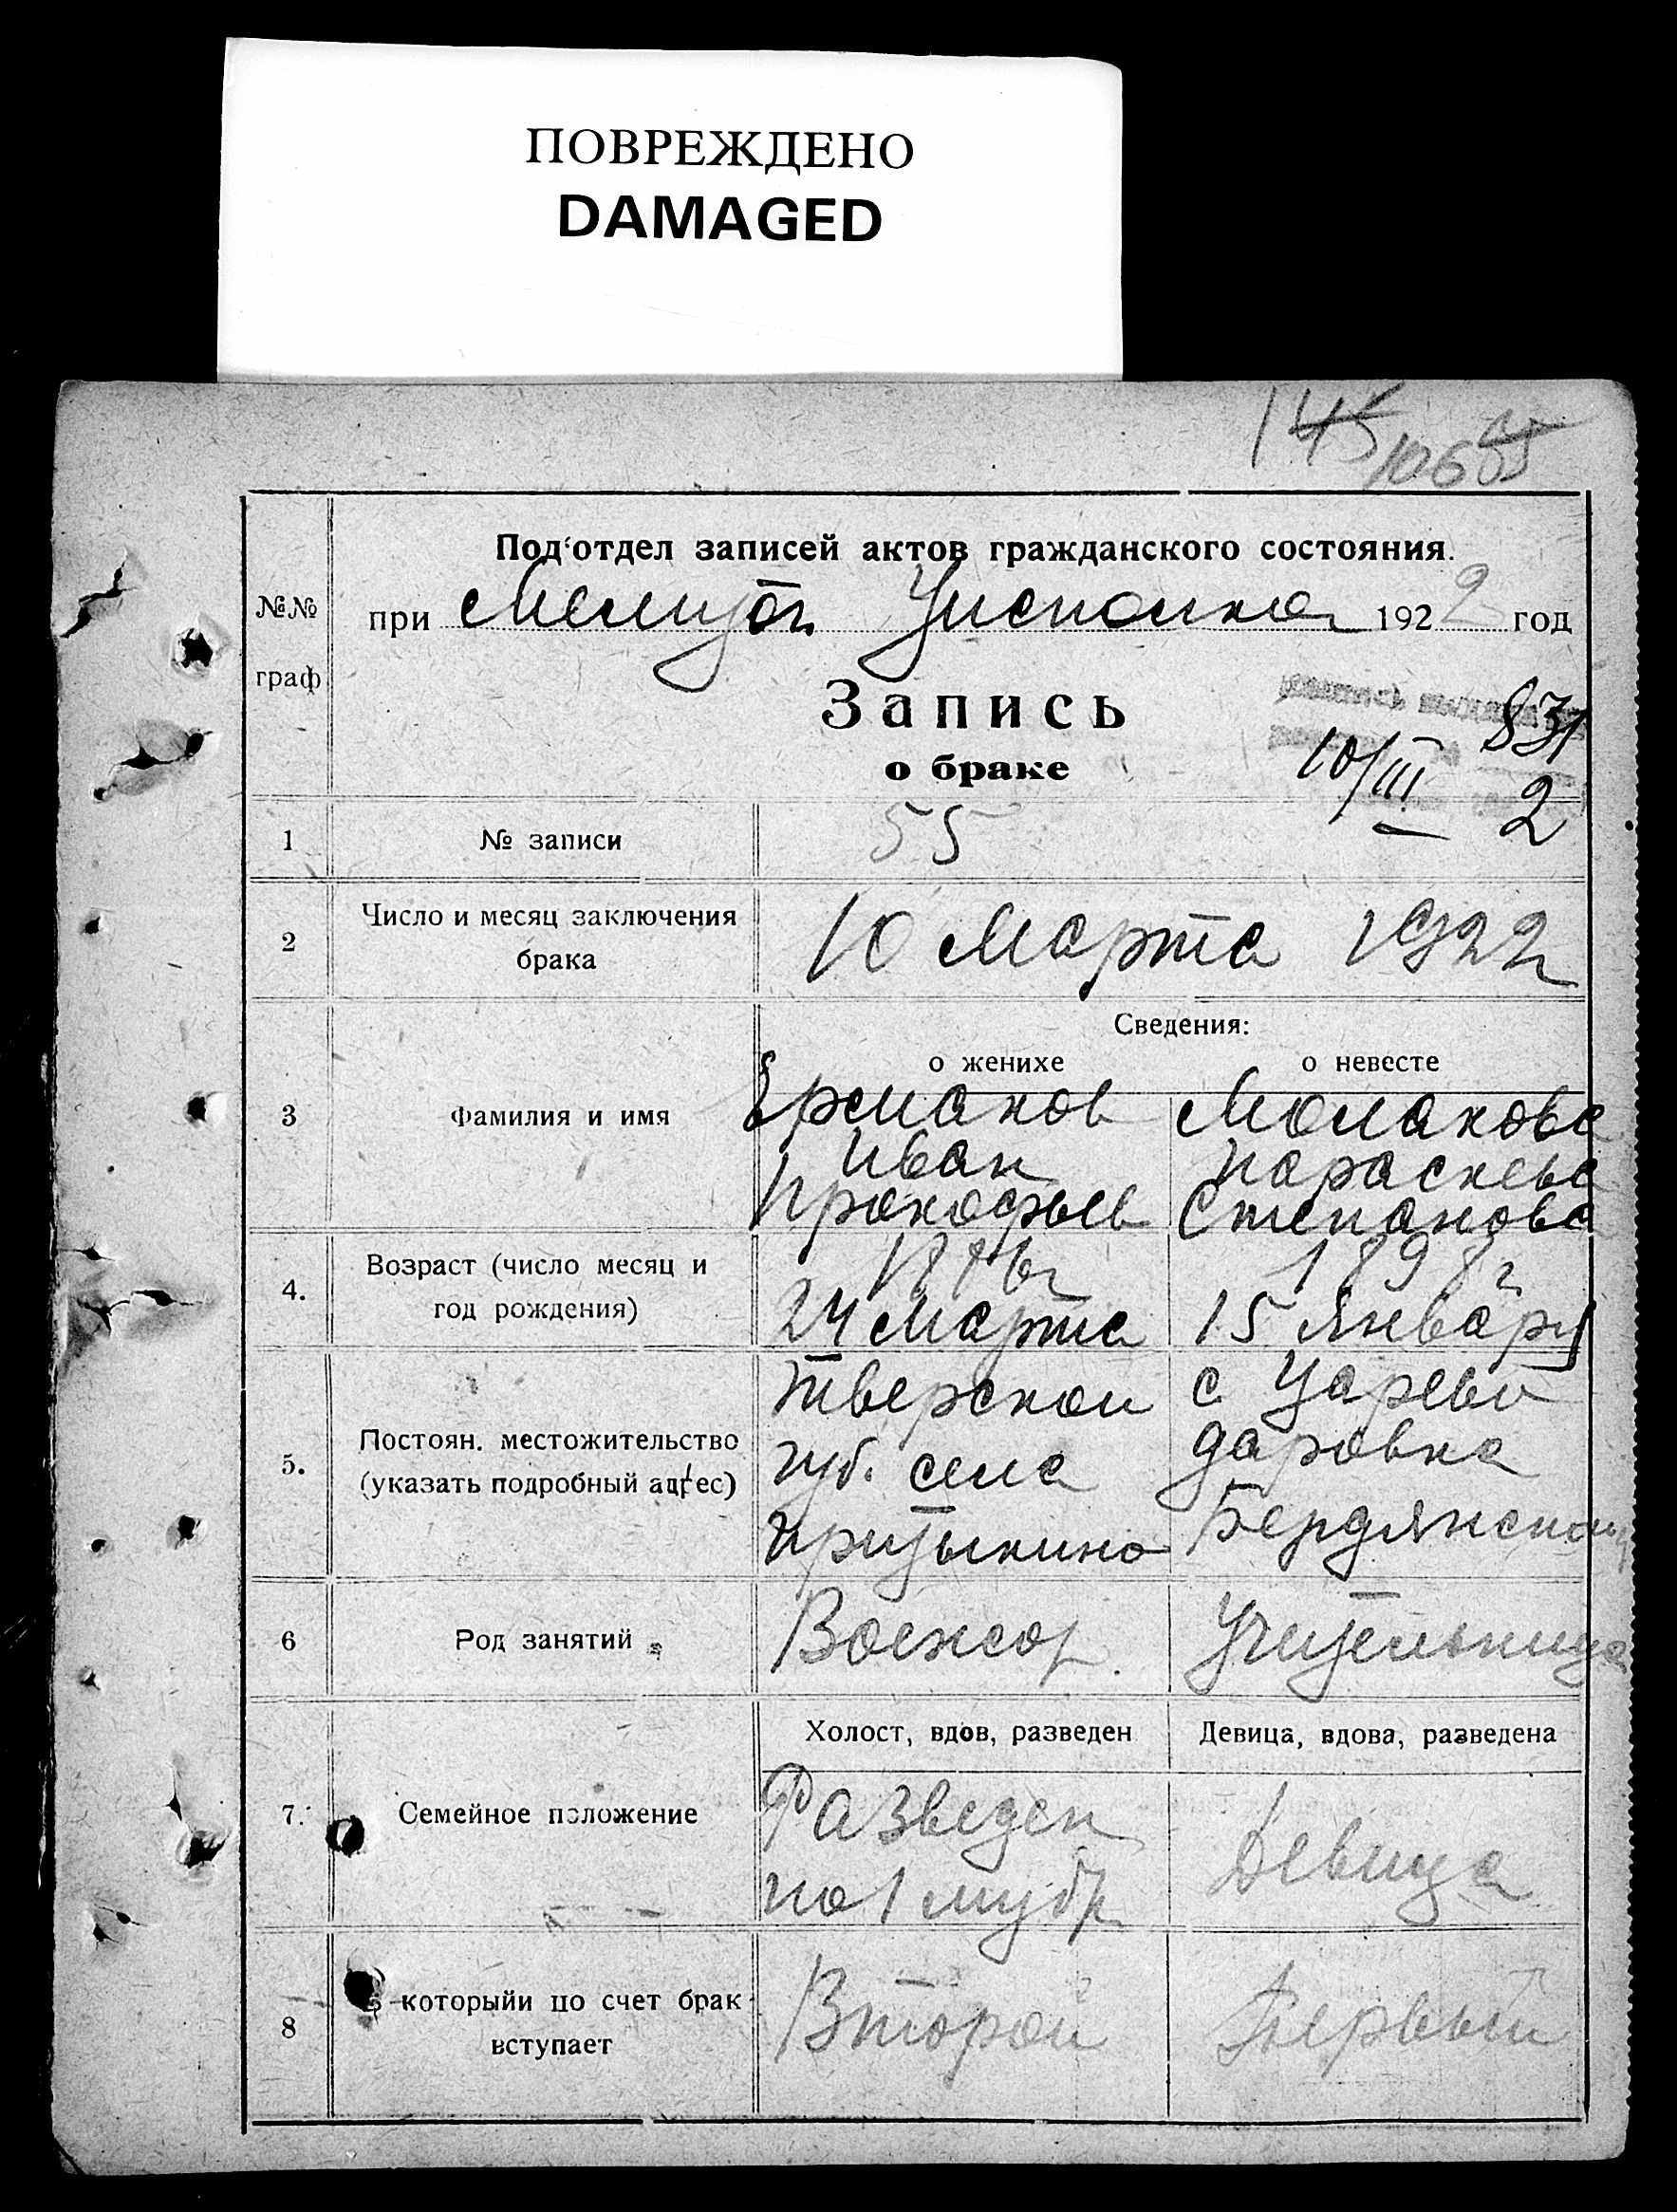 ПОВРЕЖДЕНО
DAMAGED
145
106
Под'отдел записей актов гражданского состояния.
№№
граф
при Мелитоп. Уисполкома 1922 год
Запись
о браке
831
10/III 2
1 № записи 55
2 Число и месяц заключения
брака
10 Марта 1922
Сведения:
о женихе о невесте
3 Фамилия и имя
Ермаков Молакова
Иван Параскева
Прокофьев Степанова
4. Возраст (число месяц и
год рождения)
1898г
24 Марта 15 Января
5. Постоян. местожительство
(указать подробный адрес)
Тверской с Царево
губ. села даровка
Бердянском
6 Род занятий
Учительница
7. Семейное положение
Холост, вдов, разведен Девица, вдова, разведена
Разведен Девица
8 В которыйи по счет брак
вступает
Второй Первый